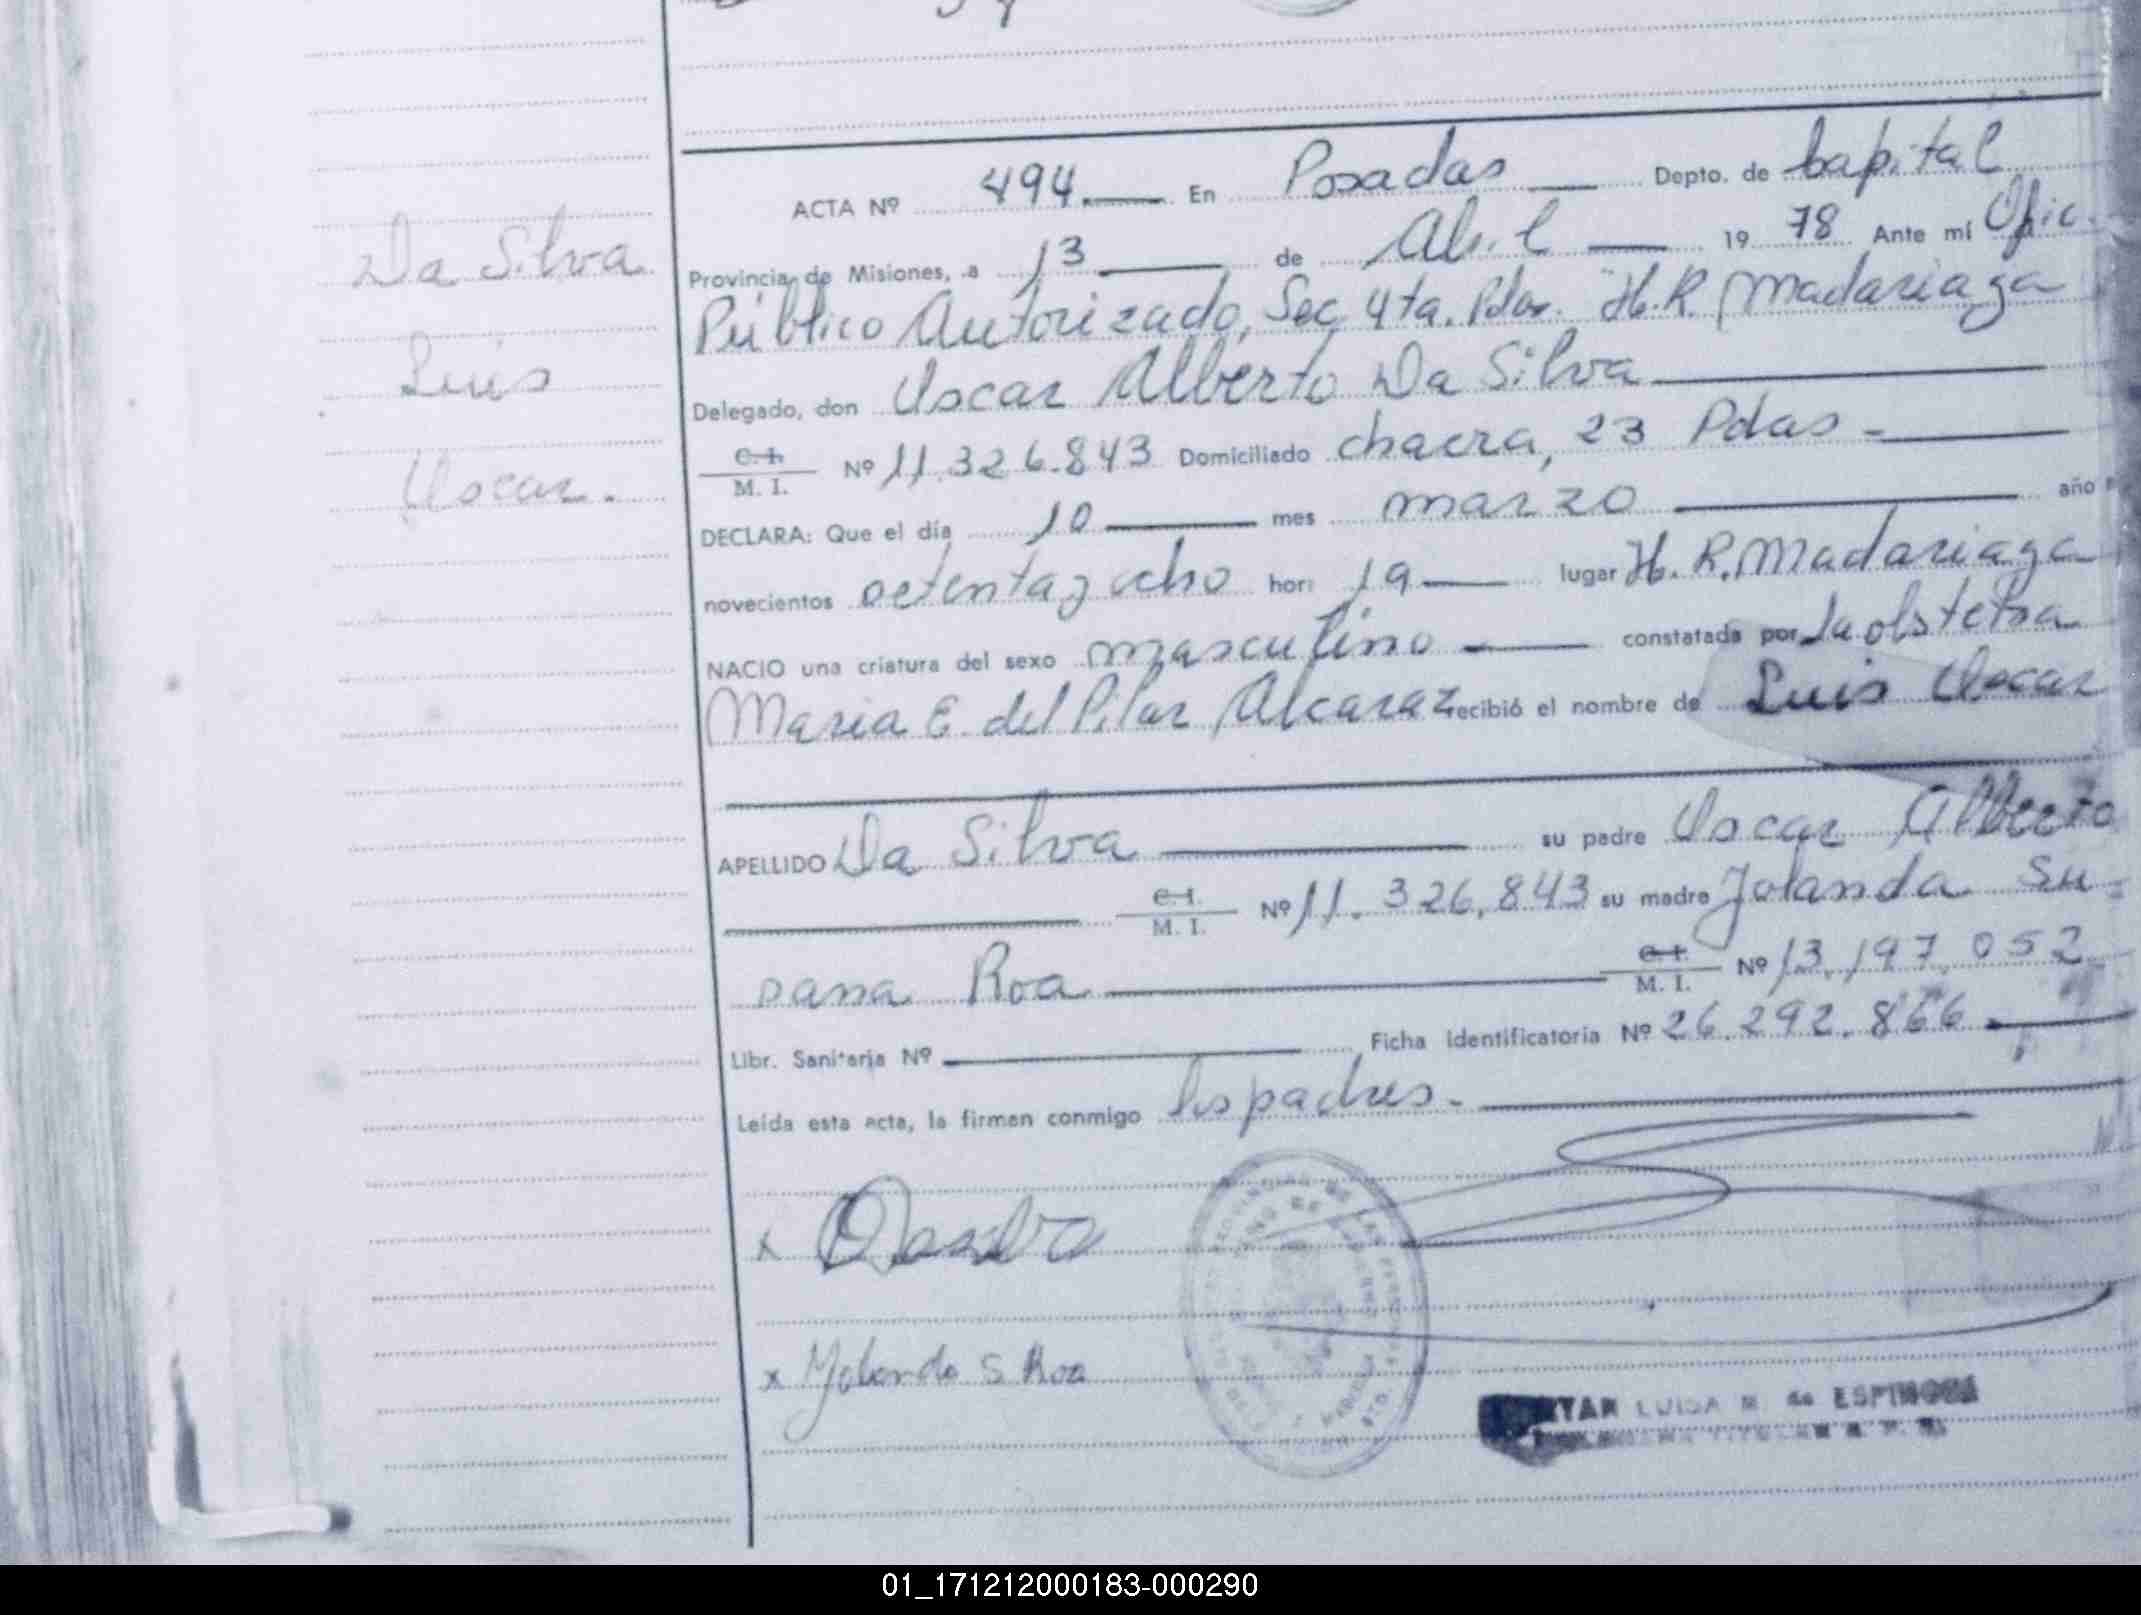 ACTA Nº 494 En Posadas Depto. de Capital
Provincia de Misiones, a 13 de Abril 1978 Ante mí Ofic.
Público Autorizado, Sec. 4ta. Pdas. H. R. Madariaga
Delegado, don Oscar Alberto Da Silva
C. I.
M. I. Nº 11.326.843 Domiciliado chacra, 23 Pdas -
DECLARA: Que el día 10 mes marzo año
novecientos setenta y ocho hora 19 lugar H. R. Madariaga
NACIO una criatura del sexo masculino constatada por la obstetra
Maria E. del Pilar Alcaraz recibió el nombre de Luis Oscar
APELLIDO Da Silva su padre Oscar Alberto
C. I.
M. I. Nº 11.326.843 su madre Yolanda Su-
sana Roa C. I.
M. I. Nº 13.197.052
Libr. Sanitaria Nº Ficha Identificatoria Nº 26.292.866
Leída esta acta, la firman conmigo los padres.-
Da Silva
Luis
Oscar.
x Dasilva
x Yolanda S Roa
LUISA M. de ESPINOSA
01_171212000183-000290